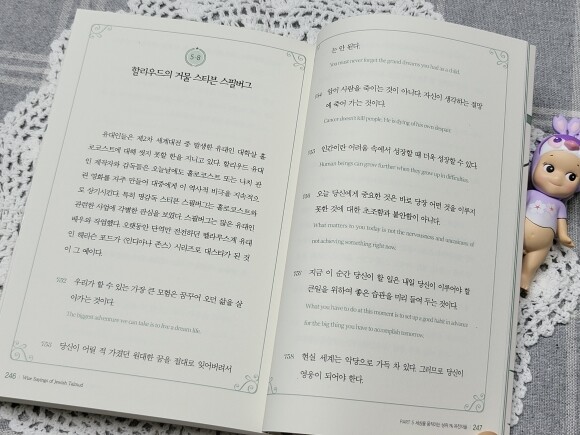 5-8
할리우드의 거물 스티븐 스필버그
유대인들은 제2차 세계대전 중 발생한 유대인 대학살 홀
로코스트에 대해 씻지 못할 한을 지니고 있다. 할리우드 유대
인 제작자와 감독들은 오늘날에도 홀로코스트 또는 나치 관
련 영화를 자주 만들어 대중에게 이 역사적 비극을 지속적으
로 상기시킨다. 특히 명감독 스티븐 스필버그는 홀로코스트와
관련한 사업에 각별한 관심을 보였다. 스필버그는 많은 유대인
배우와 작업했다. 오랫동안 단역만 전전하던 벨라루스계 유대
인 해리슨 포드가 〈인디아나 존스〉 시리즈로 대스타가 된 것
이 그 예이다.
752 우리가 할 수 있는 가장 큰 모험은 꿈꾸어 오던 삶을 살
아가는 것이다.
The biggest adventure we can take is to live a dream life.
753 당신이 어릴 적 가졌던 원대한 꿈을 절대로 잊어버려서
246 Wise Sayings of Jewish Talmud
는 안 된다.
You must never forget the grand dreams you had as a child.
754 암이 사람을 죽이는 것이 아니다. 자신이 생각하는 절망
에 죽어 가는 것이다.
Cancer doesn't kill people. He is dying of his own despair.
755 인간이란 어려움 속에서 성장할 때 더욱 성장할 수 있다.
Human beings can grow further when they grow up in difficulties.
756 오늘 당신에게 중요한 것은 바로 당장 어떤 것을 이루지
못한 것에 대한 초조함과 불안함이 아니다.
What matters to you today is not the nervousness and uneasiness of
not achieving something right now.
757 지금 이 순간 당신이 할 일은 내일 당신이 이루어야 할
큰일을 위하여 좋은 습관을 미리 들여 두는 것이다.
What you have to do at this moment is to set up a good habit in advance
for the big thing you have to accomplish tomorrow.
758 현실 세계는 악당으로 가득 차 있다. 그러므로 당신이
영웅이 되어야 한다.
PART 5 세상을 움직이는 상위 1% 유전자들 247